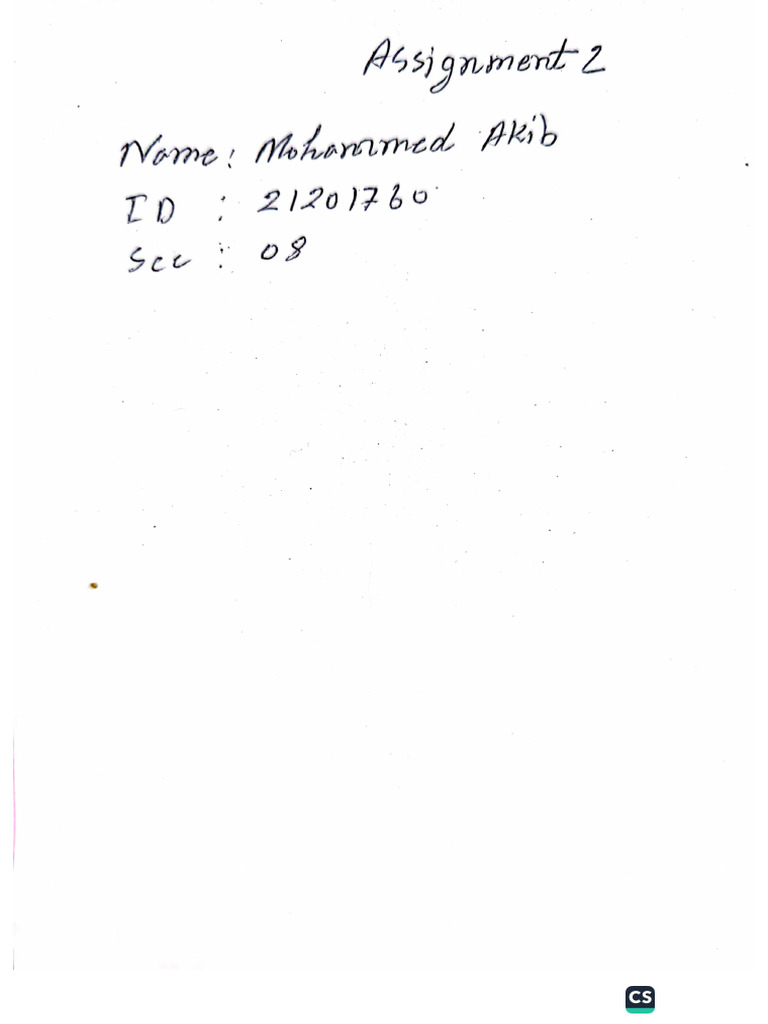 Assignment 2
Name: Mohammed Akib
ID : 21201760
Sec : 08
CS